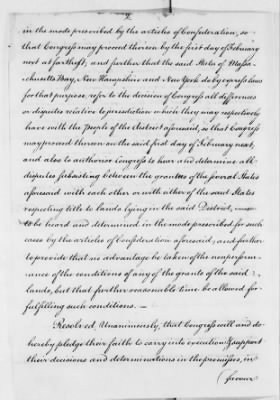 2
in the mode prescribed by the articles of Confederation, so
that Congress may proceed thereon by the first day of February
next at farthest, and further that the said States of Massa-
chusetts Bay, New Hampshire and New York do by express laws
for that purpose, refer to the decision of Congress all differences
or disputes relative to jurisdiction which they may respectively
have with the People of the District aforesaid, so that Congress
may proceed thereon on the said first day of February next,
and also to authorise Congress to hear and determine all
disputes subsisting between the grantees of the several States
aforesaid with each other or with either of the said States
respecting title to lands lying in the said District,
to be heard and determined in the mode prescribed for such
cases by the articles of Confederation aforesaid; and further
to provide that no advantage be taken of the nonperform-
ance of the conditions of any of the grants of the said
lands, but that further reasonable time be allowed for
fulfilling such conditions. —
Resolved, Unanimously, that Congress will and do
hereby pledge their faith to carry into execution & support
their decisions and determinations in the premises, in
favour